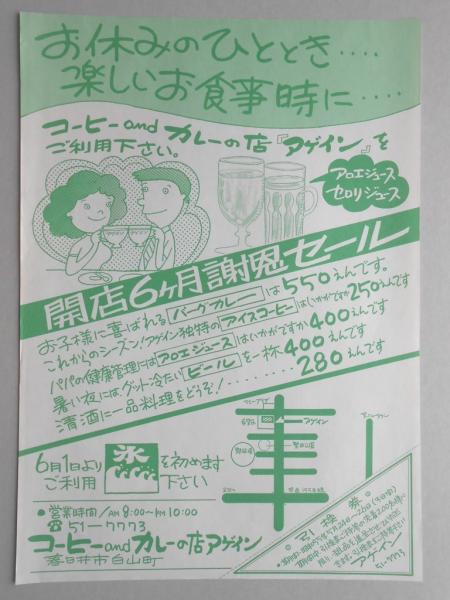 お休みのひととき‥‥
楽しいお食事時に‥‥
コーヒーandカレーの店『アゲイン』を
ご利用下さい。
アロエジュース
セロリジュース
アゲイン
アゲイン
開店6ヶ月謝恩セール
お子様に喜ばれるバーグカレーは550えんです。
これからのシーズン!アゲイン独特のアイスコーヒーはいかがですか250えんです
パパの健康管理にはアロエジュースはいかがですか400えんです
暑い夜にはグット冷たいビールを一杯400えんです
清酒に一品料理をどうぞ!‥‥‥‥280えんです
アゲイン
6月1日より
氷
を始めます
ご利用
下さい
・営業時間/AM8:00〜PM10:00
☎51-7773
コーヒーandカレーの店アゲイン
春日井市白山町
引換券
アゲイン
51-7773